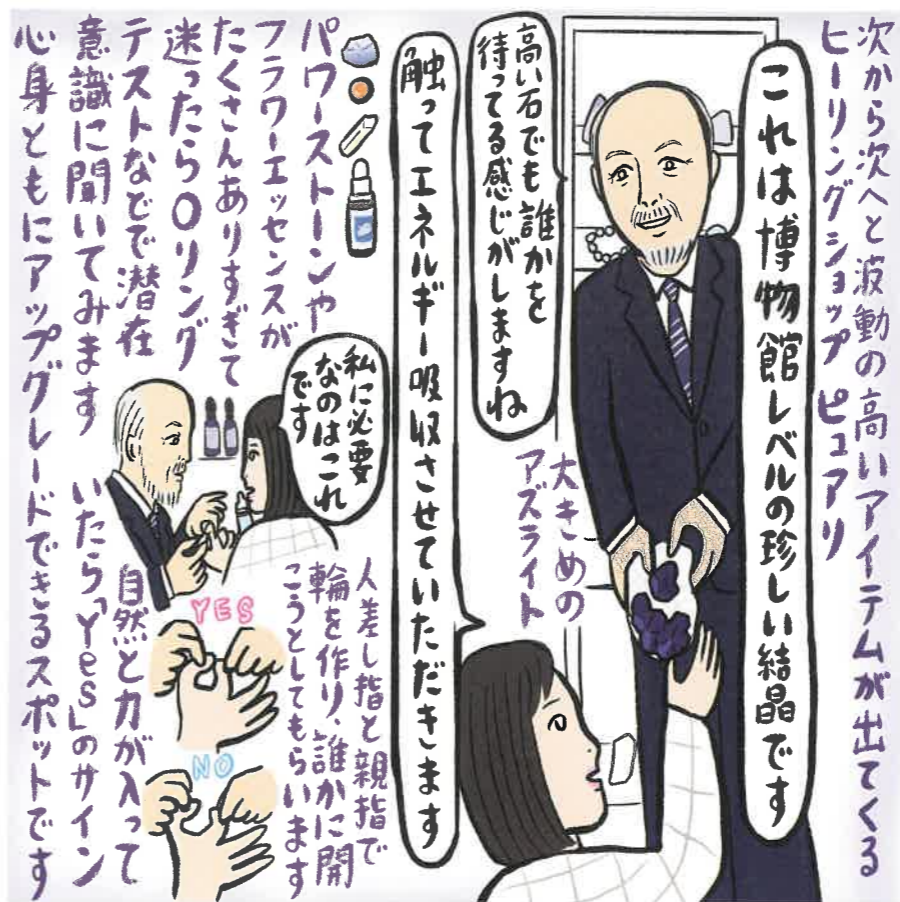 次から次へと波動の高いアイテムが出てくる
ヒーリングショップ ピュアリ
これは博物館レベルの珍しい結晶です
高い石でも誰かを
待ってる感じがしますね
大きめの
アズライト
触ってエネルギー吸収させていただきます
パワーストーンや
フラワーエッセンスが
たくさんありすぎて
迷ったらOリング
テストなどで潜在
意識に聞いてみます
私に必要
なのはこれ
です
人差し指と親指で
輪を作り、誰かに開
こうとしてもらいます
YES
NO
自然と力が入って
いたら「Yes」のサイン
心身ともにアップグレードできるスポットです